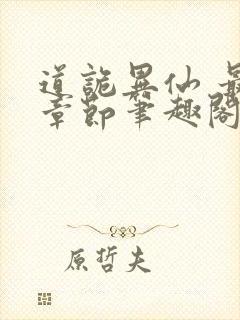 道詭異仙 最
章節筆趣閣
原哲夫